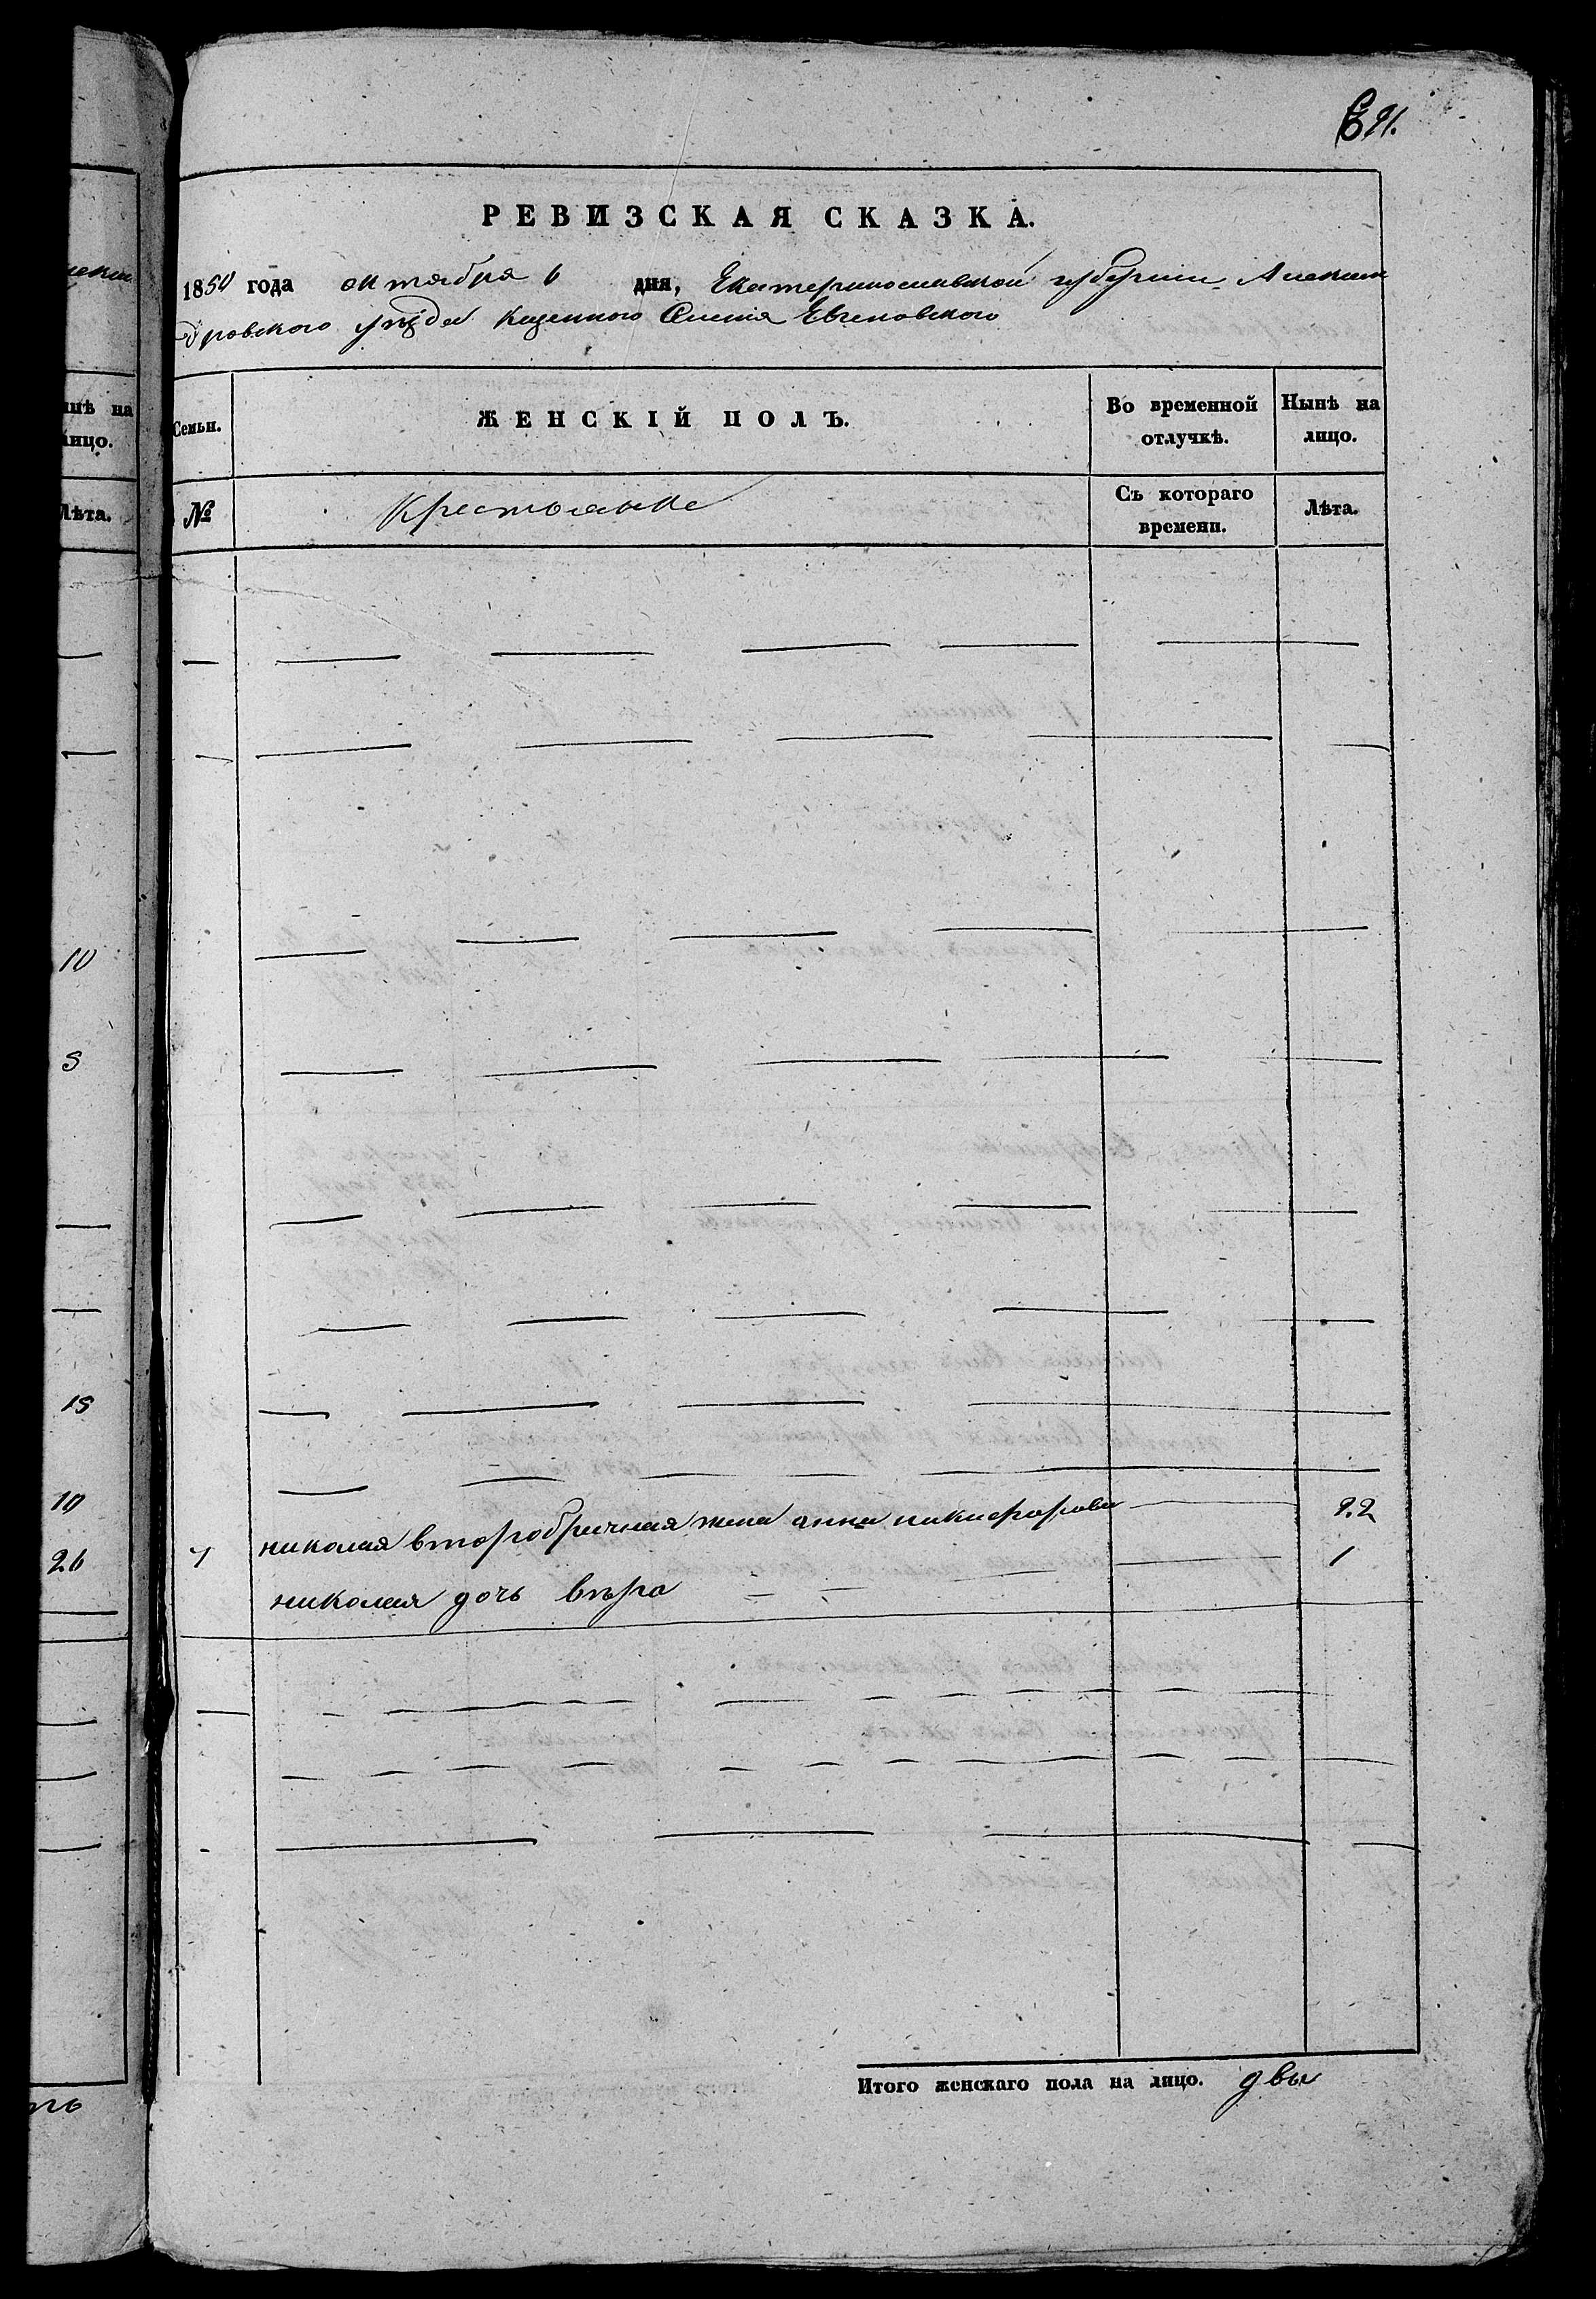 91.
РЕВИЗСКАЯ СКАЗКА.
1850 года октября 6 дня, Екатеринославской губернии Алексан
дровского уѣзда казенного Селения
ЖЕНСКІЙ ПОЛЪ.
Семьи.
Во временной отлучкѣ.
Нынѣ на лицо.
№
Крестьянке
Съ котораго времени.
Лѣта.
николая второбрачная жена анна никифорова 22
николая дочь вѣра 1
Итого женскаго пола на лицо. двы
нѣ на
лицо.
Лѣта.
10
5
15
10
26